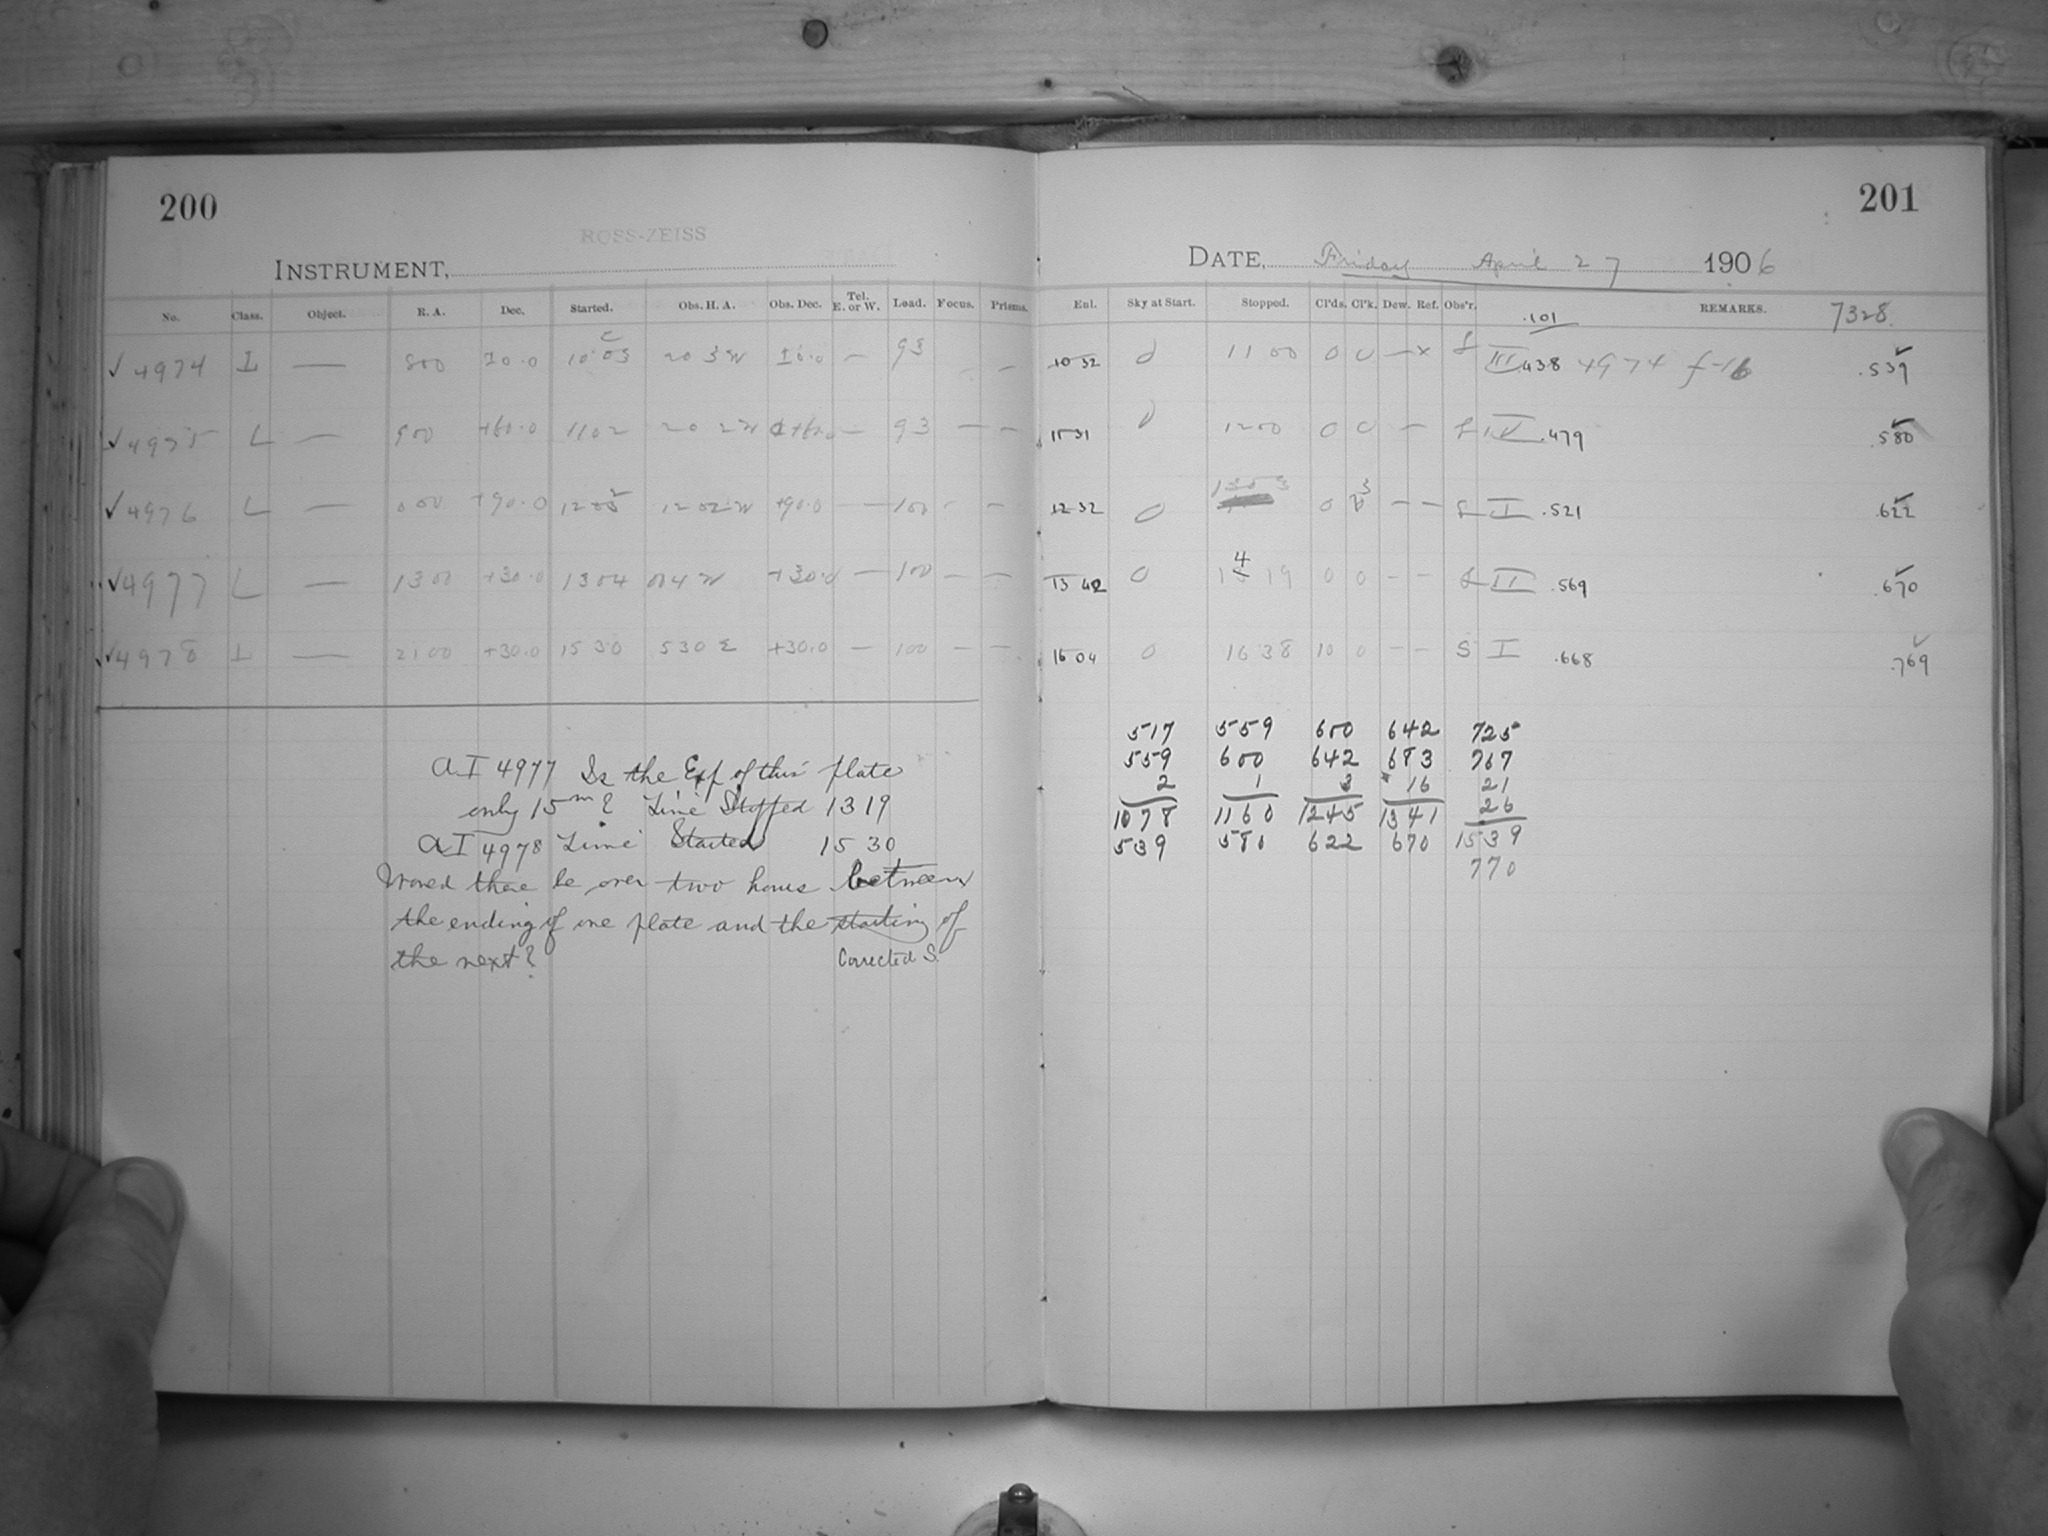 200
201
ROSS-ZEISS
INSTRUMENT,
DATE, Friday April 27 1906
No. Class. Object. R. A. Dec. Started. Obs. H. A. Obs. Dec. Tel. E. or W. Load. Focus. Prisms.
Enl. Sky at Start. Stopped. Cl'ds. Cl'k. Dew. Ref. Obs'r. REMARKS. 7328
.101
✓ 4974 L — 800 — 93 — 10 32 0 11 00 0 0 — × S III .438 4974 f-16 .539 ✓
✓ 4975 L — 900 +60.0 11 02 2 0 2 W +60.0 — 93 — — 11 31 0 12 00 0 0 — S IV .479 .580 ✓
✓ 4976 L — 0 00 +90.0 12 02 W +90.0 — 100 - — 12 32 0 0 3 — — S I .521 .622 ✓
✓ 4977 L — 13 00 +30.0 13 04 0 04 W +30.0 — 100 — — 13 42 0 4 19 0 0 - - S II .569 .670 ✓
✓ 4978 L — 21 00 +30.0 15 30 5 30 E +30.0 — 100 — — 16 04 0 16 38 10 0 - - S I .668 .769 ✓
517 559 600 642 725
559 600 642 683 767
2 1 3 16 21
26
1078 1160 1245 1341 1539
539 580 622 670 770
A I 4977 Is the Exp of this plate
only 15m? Time Stopped 13 19
A I 4978 Time Started 15 30
Would there be over two hours between
the ending of one plate and the starting of
the next?
Corrected S.